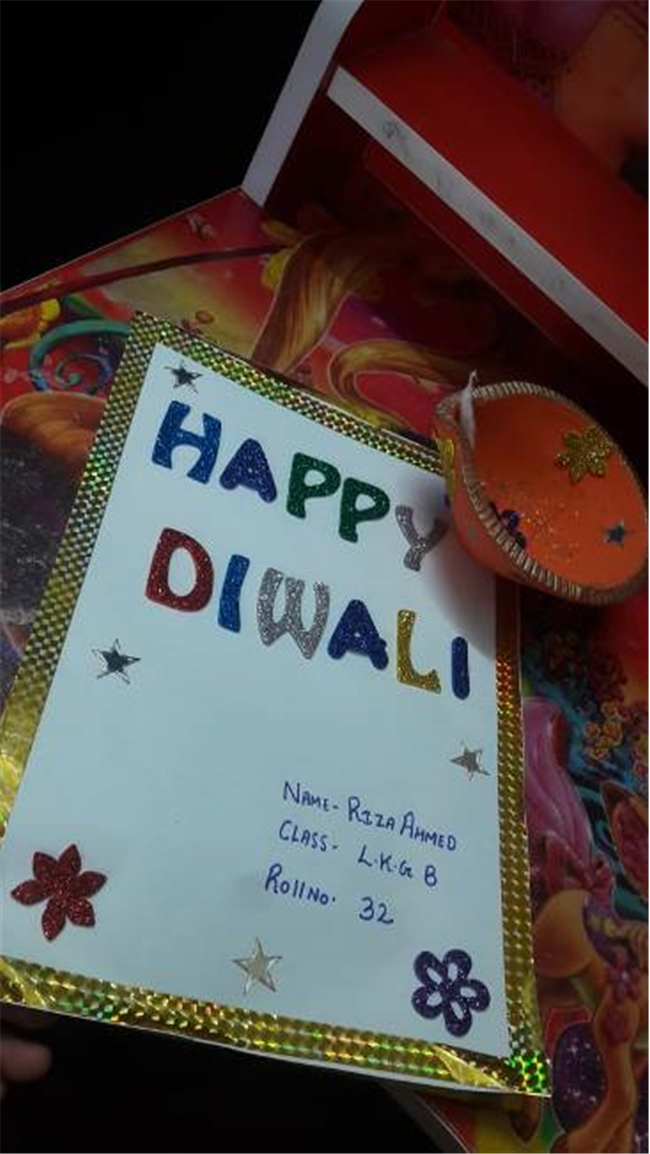 HAPPY
DIWALI
NAME- RIZA AHMED
CLASS- L.K.G B
Roll No. 32